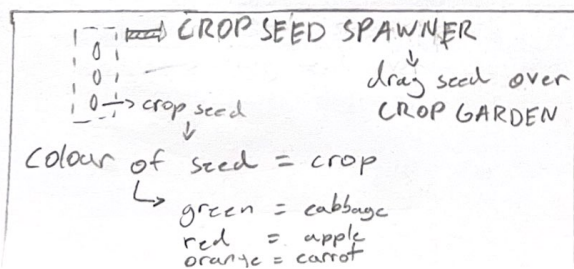 CROP SEED SPAWNER
drag seed over
CROP GARDEN
crop seed
colour of seed = crop
green = cabbage
red = apple
orange = carrot